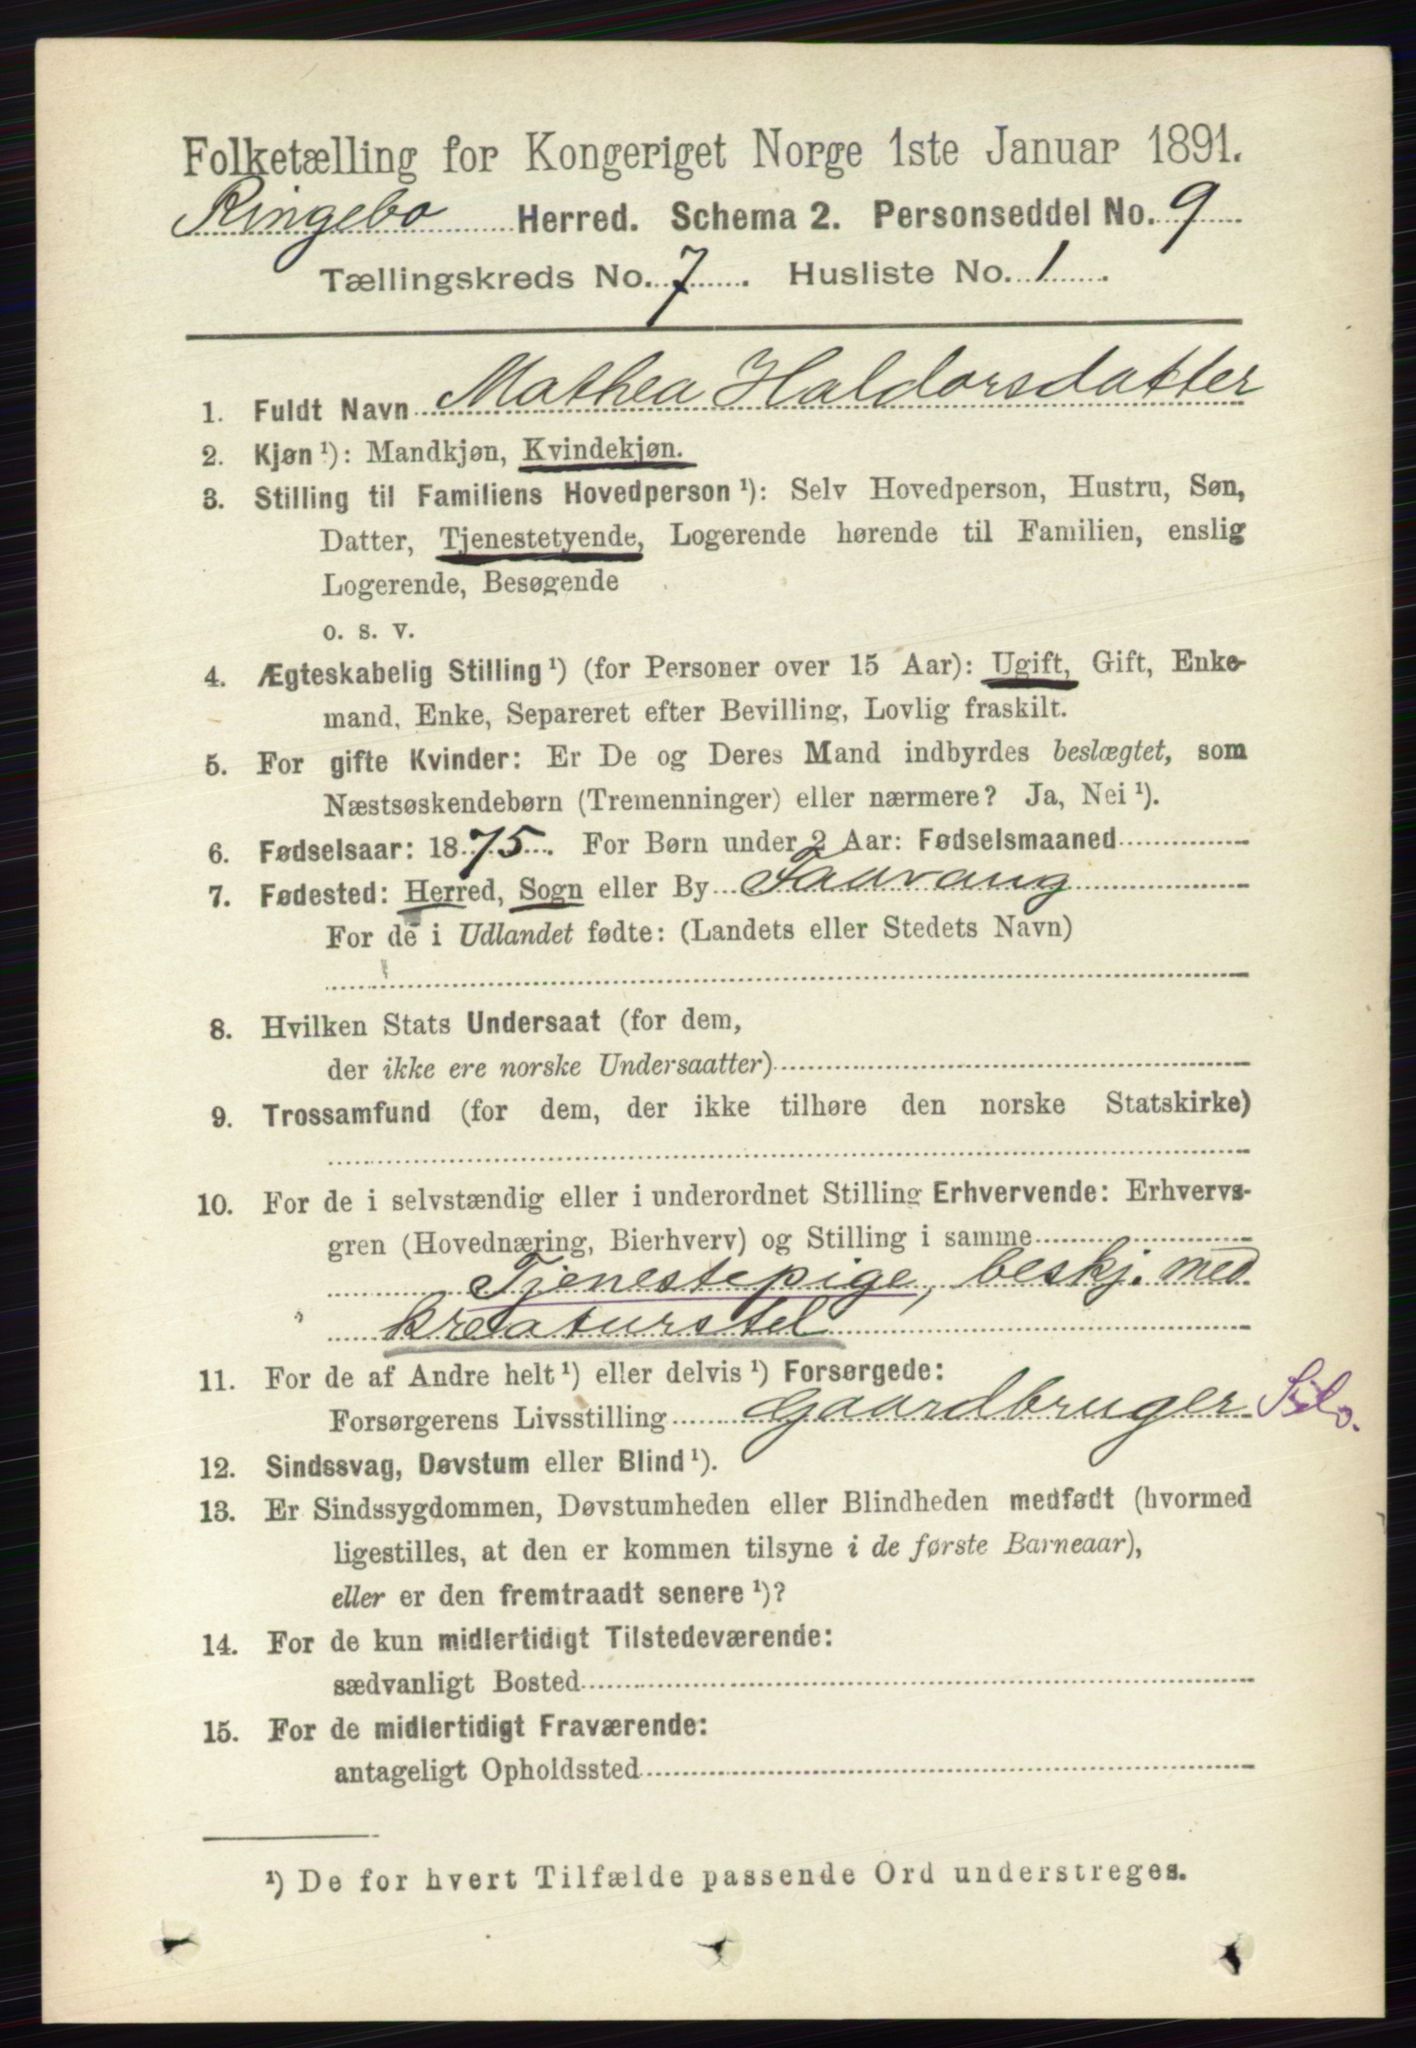 Folketælling for Kongeriget Norge 1ste Januar 1891.
Ringebo Herred. Schema 2. Personseddel No. 9
Tællingskreds No. 7. Husliste No. 1.
1. Fuldt Navn Mathea Haldorsdatter
2. Kjøn¹): Mandkjøn, Kvindekjøn.
3. Stilling til Familiens Hovedperson¹): Selv Hovedperson, Hustru, Søn,
Datter, Tjenestetyende, Logerende hørende til Familien, enslig
Logerende, Besøgende
o. s. v.
4. Ægteskabelig Stilling¹) (for Personer over 15 Aar): Ugift, Gift, Enke-
mand, Enke, Separeret efter Bevilling, Lovlig fraskilt.
5. For gifte Kvinder: Er De og Deres Mand indbyrdes beslægtet, som
Næstsøskendebørn (Tremenninger) eller nærmere? Ja, Nei¹).
6. Fødselsaar: 1875. For Børn under 2 Aar: Fødselsmaaned
7. Fødested: Herred, Sogn eller By Faavang
For de i Udlandet fødte: (Landets eller Stedets Navn)
8. Hvilken Stats Undersaat (for dem,
der ikke ere norske Undersaatter)
9. Trossamfund (for dem, der ikke tilhøre den norske Statskirke)
10. For de i selvstændig eller i underordnet Stilling Erhvervende: Erhvervs-
gren (Hovednæring, Bierhverv) og Stilling i samme
Tjenestepige, beskj. med
kreaturstel
11. For de af Andre helt¹) eller delvis¹) Forsørgede:
Forsørgerens Livsstilling Gaardbruger
12. Sindssvag, Døvstum eller Blind¹).
13. Er Sindssygdommen, Døvstumheden eller Blindheden medfødt (hvormed
ligestilles, at den er kommen tilsyne i de første Barneaar),
eller er den fremtraadt senere¹)?
14. For de kun midlertidigt Tilstedeværende:
sædvanligt Bosted
15. For de midlertidigt Fraværende:
antageligt Opholdssted
¹) De for hvert Tilfælde passende Ord understreges.